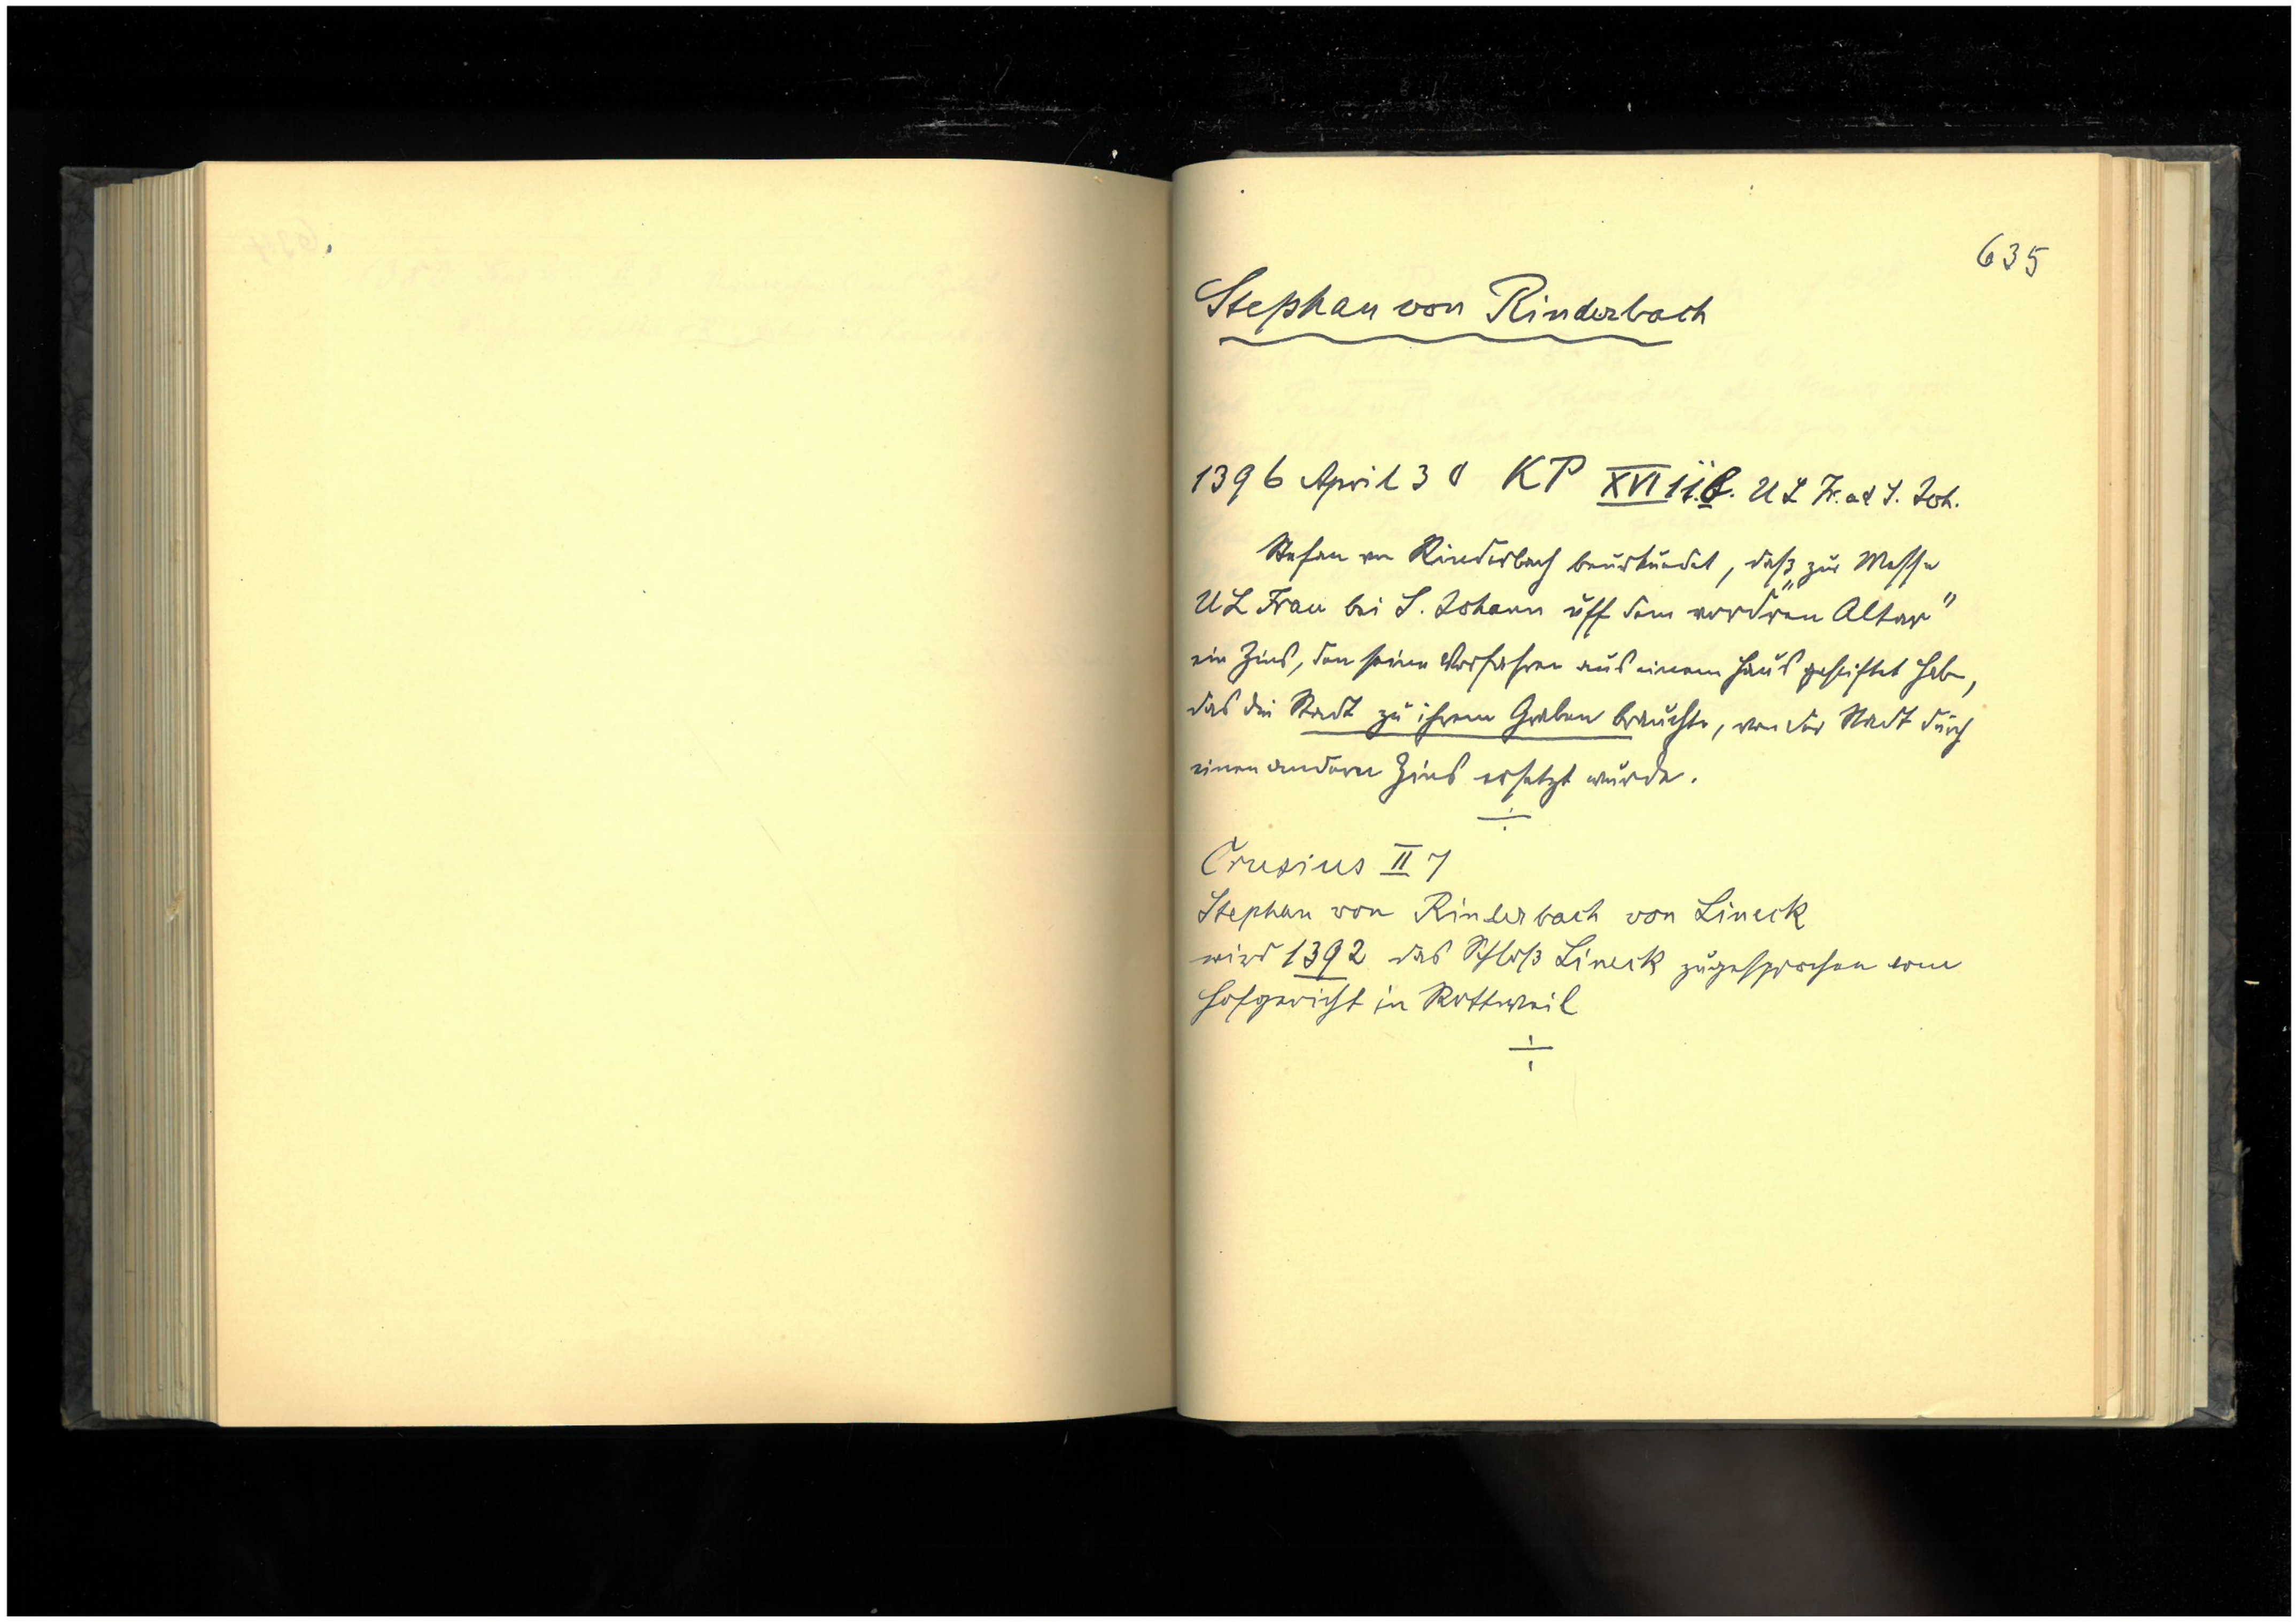 635
Stephan von Rinderbach
1396 April 30 KP XVI 11. U L Fr. ad S. Joh.
Stefan von Rinderbach beurkundet, daß zur Messe
U L Frau bei S. Johann "uff dem vordren Altar"
ein Zins, den seine Vorfahren aus einem Haus gestiftet haben,
das die Stadt zu ihrem Graben brauchte, von der Stadt durch
einen andern Zins ersetzt wurde.
Crusius II 7
Stephan von Rinderbach von Lineck
wird 1392 das Schloß Lineck zugesprochen vom
Hofgericht in Rottweil